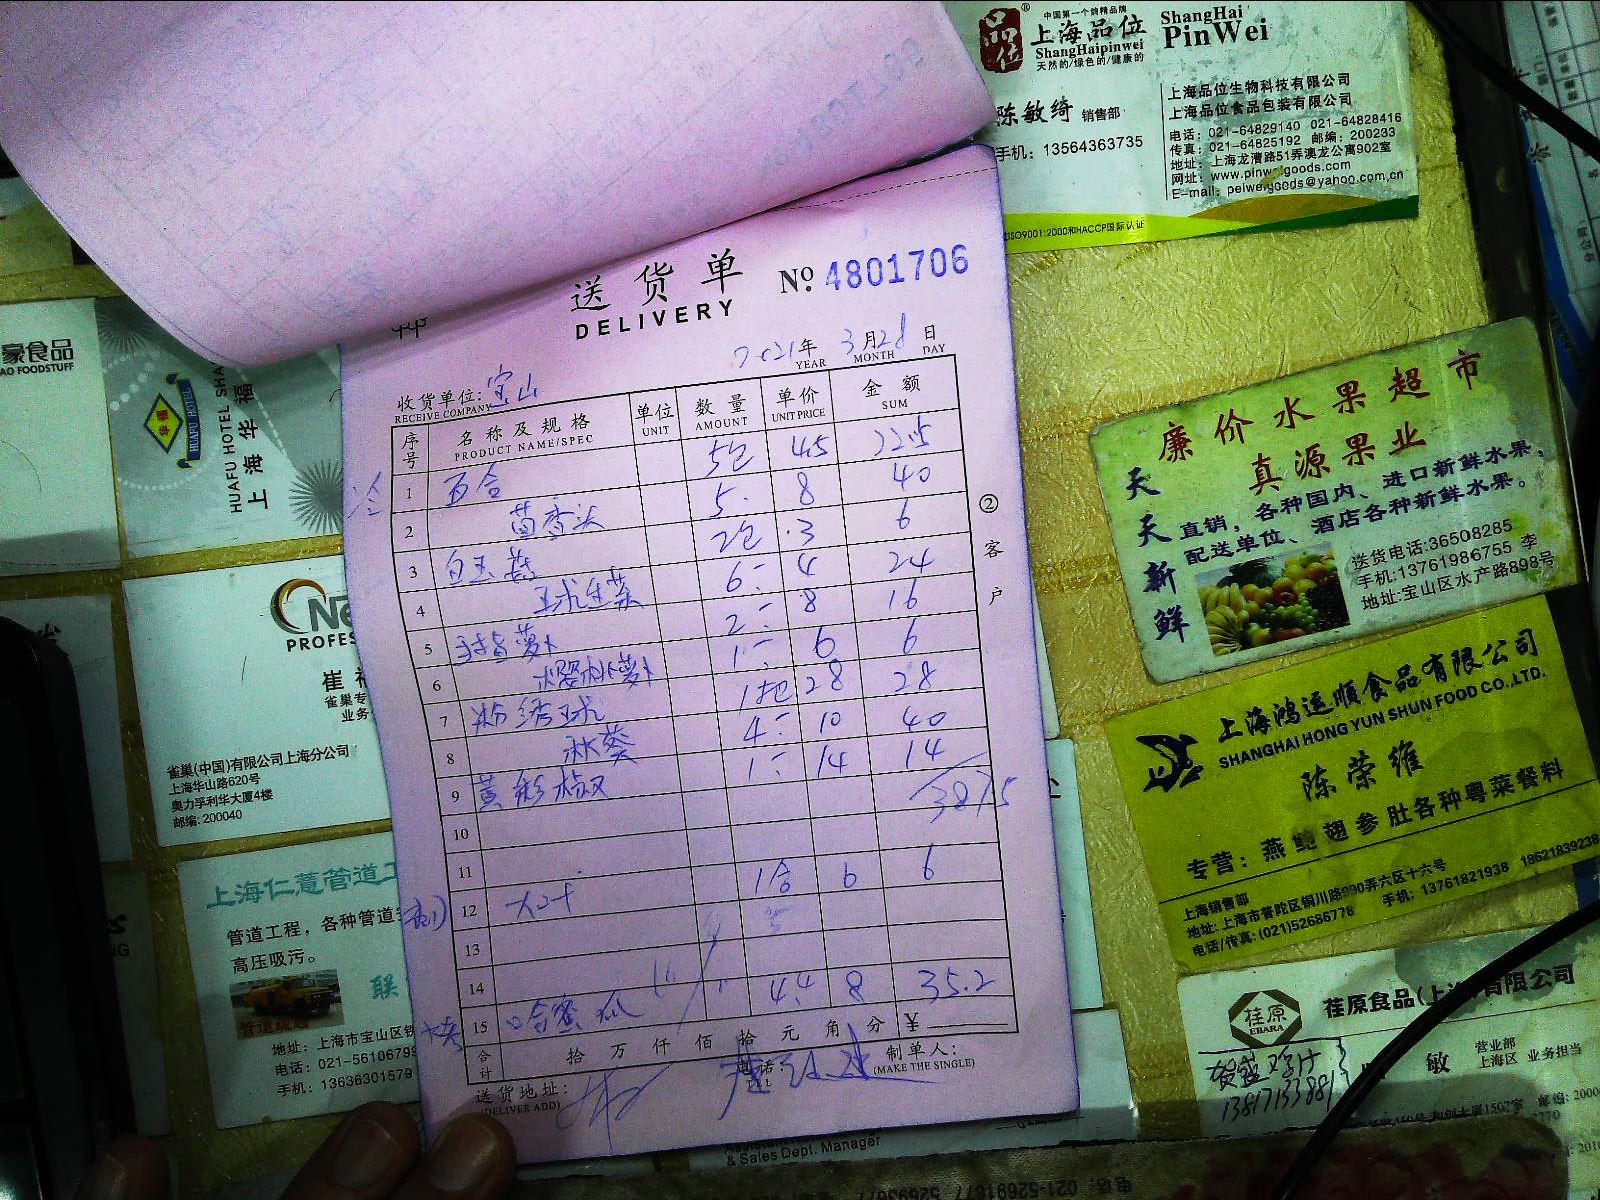 中国第一个鸽精品牌
品位
上海品位
ShangHaipinwei
天然的/绿色的/健康的
ShangHai
PinWei
陈敏绮 销售部
手机：13564363735
上海品位生物科技有限公司
上海品位食品包装有限公司
电话：021-64829140 021-64828416
传真：021-64825192 邮编：200233
地址：上海龙漕路51弄澳龙公寓902室
网址：www.pinweigoods.com
E-mail：peiweigoods@yahoo.com.cn
ISO9001:2000和HACCP国际认证
送货单
DELIVERY
No. 4801706
2021年 3月28日
YEAR MONTH DAY
收货单位：宝山
RECEIVE COMPANY
序号 名称及规格 单位 数量 单价 金额
PRODUCT NAME/SPEC UNIT AMOUNT UNIT PRICE SUM
1 百合 5包 4.5 22.5
2 茴香头 5. 8 40
3 白玉菇 2包 3 6
4 球生菜 6 4 24
5 手指萝卜 2 8 16
6 樱桃萝卜 1 6 6
7 粉绣球 1把 28 28
8 秋葵 4 10 40
9 黄彩椒 1 14 14
10
11
12 大叶 1合 6 6
13
14
15 哈蜜瓜 4.4 8 35.2
合计 拾 万 仟 佰 拾 元 角 分 ¥
送货地址：
(DELIVER ADD)
电话：
TEL
制单人：
(MAKE THE SINGLE)
②客户
豪食品
AO FOODSTUFF
华福
HUAFU HOTEL
HUAFU HOTEL SHA
上海华福
PROFES
崔
雀巢专
业务
雀巢(中国)有限公司上海分公司
上海华山路620号
奥力孚利华大厦4楼
邮编: 200040
上海仁薏管道工
管道工程，各种管道
高压吸污。
管道疏通
联
地址：上海市宝山区铁
电话：021-5610679
手机：13636301579
廉价水果超市
真源果业
天天新鲜
直销，各种国内、进口新鲜水果，
配送单位、酒店各种新鲜水果。
送货电话:36508285
手机:13761986755 李
地址:宝山区水产路898号
上海鸿运顺食品有限公司
SHANGHAI HONG YUN SHUN FOOD CO.,LTD.
陈荣维
专营：燕鲍翅参肚各种粤菜餐料
上海销售部
地址: 上海市普陀区铜川路990弄六区十六号
电话/传真: (021)52686778 手机: 13761821938 18621839238
荏原
EBARA
荏原食品(上海)有限公司
敏
营业部
上海区 业务担当
13817133881
Assistant
& Sales Dept. Manager